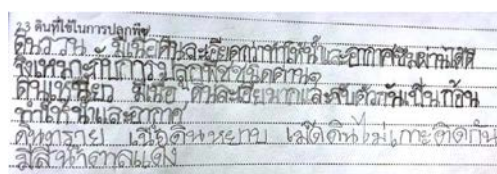 2.3 ดินที่ใช้ในการปลูกพืช
ดินร่วน มีเนื้อดินละเอียดทำให้น้ำและอากาศซึมผ่านได้ดี
จึงเหมาะกับการปลูกพืชชนิดต่างๆ
ดินเหนียว มีเนื้อ ดินละเอียมากและจับตัวกันเป็นก้อน
ทำให้น้ำและอากาศ
ดินทราย เนื้อดินหยาบ เม็ดดินไม่เกาะติดกัน
มีสีน้ำตาลแดง